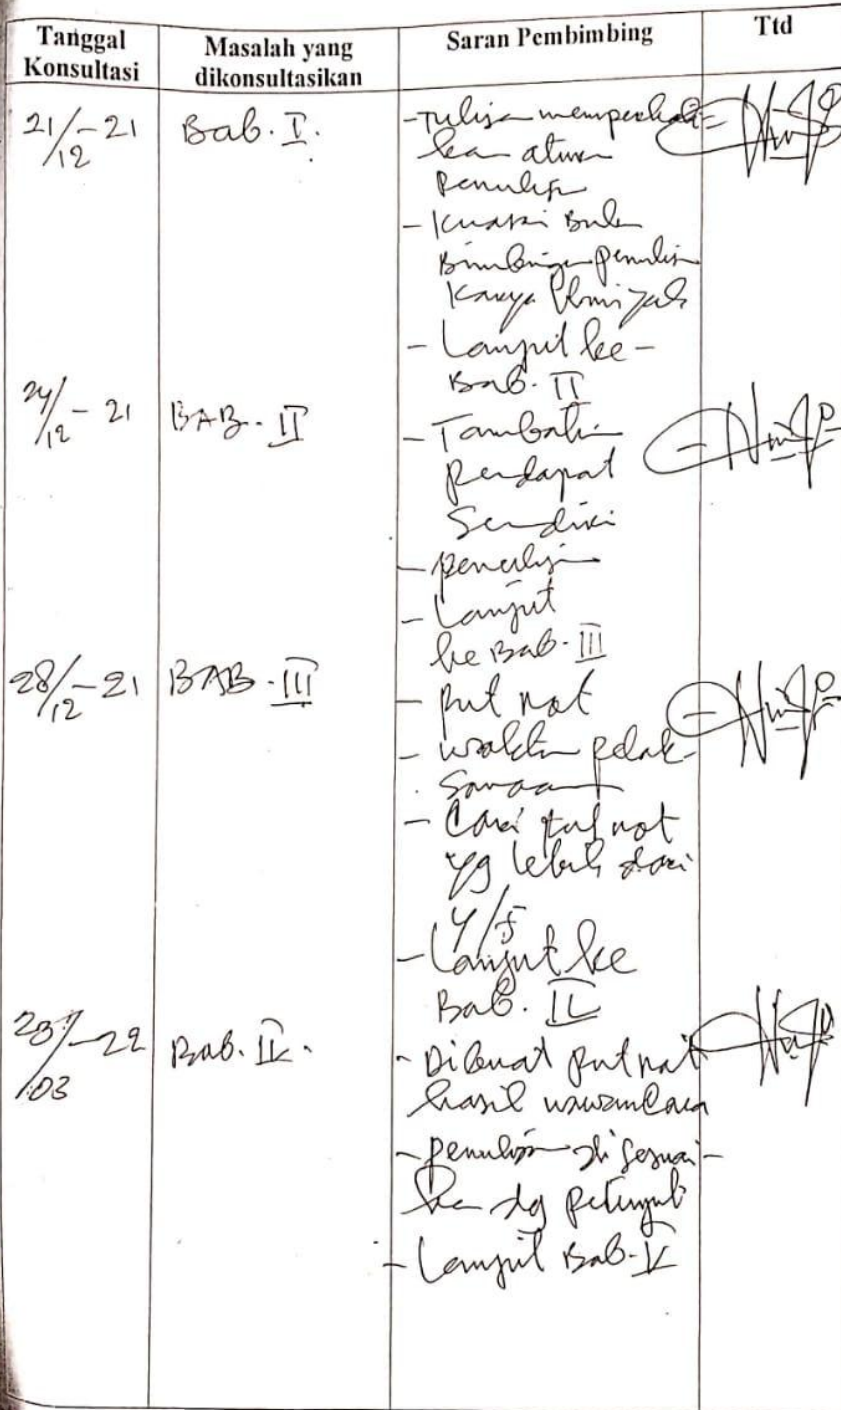 Tanggal Konsultasi
Masalah yang dikonsultasikan
Saran Pembimbing
Ttd
21/12-21
Bab. I.
- Tulisan memperhati-
kan aturan
penulisan
- Kuasai Buku
Bimbingan penulisan
Karya Ilmiyah
- Lanjut ke -
Bab. II
24/12-21
BAB. II
- Tambah
pendapat
Sendiri
- penulisan
- Lanjut
ke Bab. III
28/12-21
BAB. III
- put not
- waktu pelak-
sanaan
- Cari put not
yg lebih dari
4/5
- Lanjut ke
Bab. IV
/03-22
Bab. IV.
- Dibuat put not
hasil wawancara
- penulisan di sesuai-
kan dg petunjuk
- Lanjut Bab. V